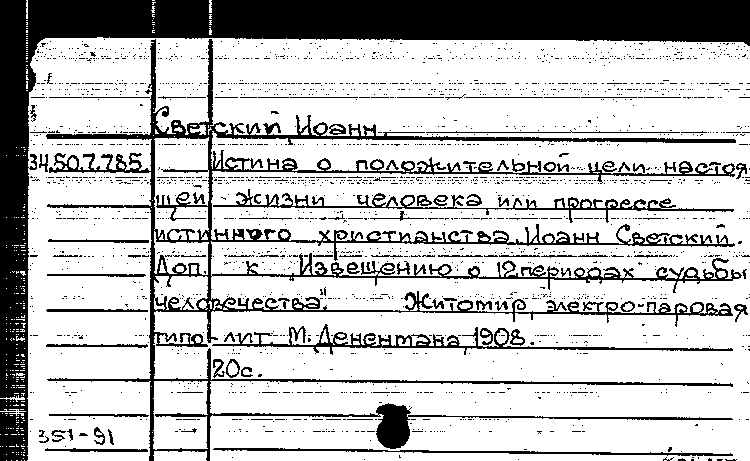 Светский, Иоанн.
34.50.7.785. Истина о положительной цели настоя-
щей жизни человека, или прогрессе
истинного христианства. Иоанн Светский.
Доп. к „Извещению о 12 периодах судьбы
человечества". Житомир, электро-паровая
типо-лит. М. Дененмана, 1908.
20с.
351-91